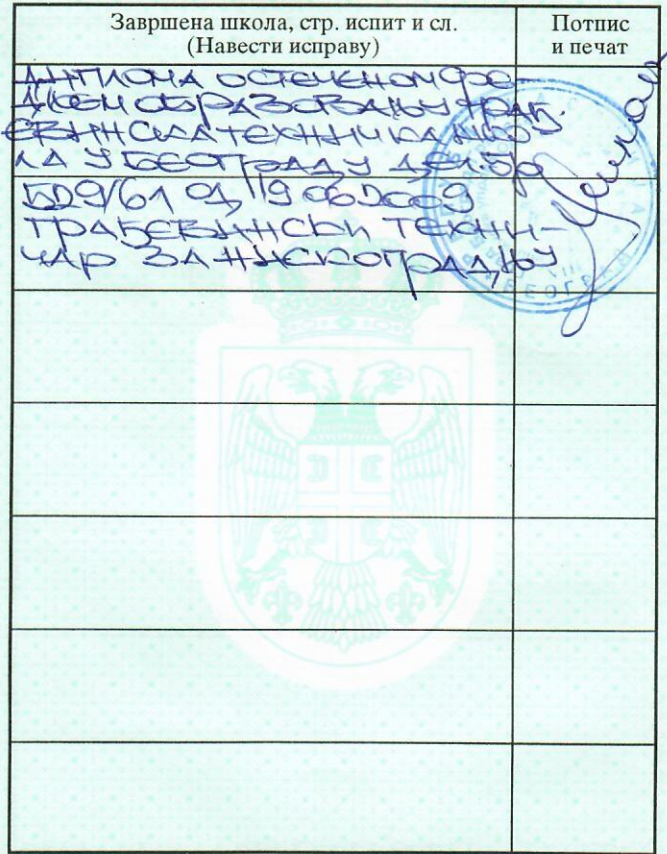 Завршена школа, стр. испит и сл.
(Навести исправу)
Потпис
и печат
ДИПЛОМА О СТЕЧЕНОМ СРЕ-
ДЊЕМ ОБРАЗОВАЊУ ГРАЂ.
ЕВИНСКА ТЕХНИЧКА ШКО-
ЛА У БЕОГРАДУ ДЕЛ. БР
529/61 ОД 19 06 2009
ГРАЂЕВИНСКИ ТЕХНИ-
ЧАР ЗА НИСКОГРАДЊУ